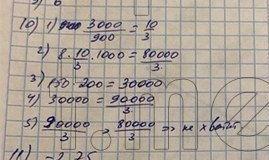 9) 6
10) 1) 3000/900 = 10/3
2) 8 · 10/3 · 1000 = 80000/3
3) 150 · 200 = 30000
4) 30000 = 90000/3
5) 90000/3 > 80000/3 => не хватит.
11) -2,25